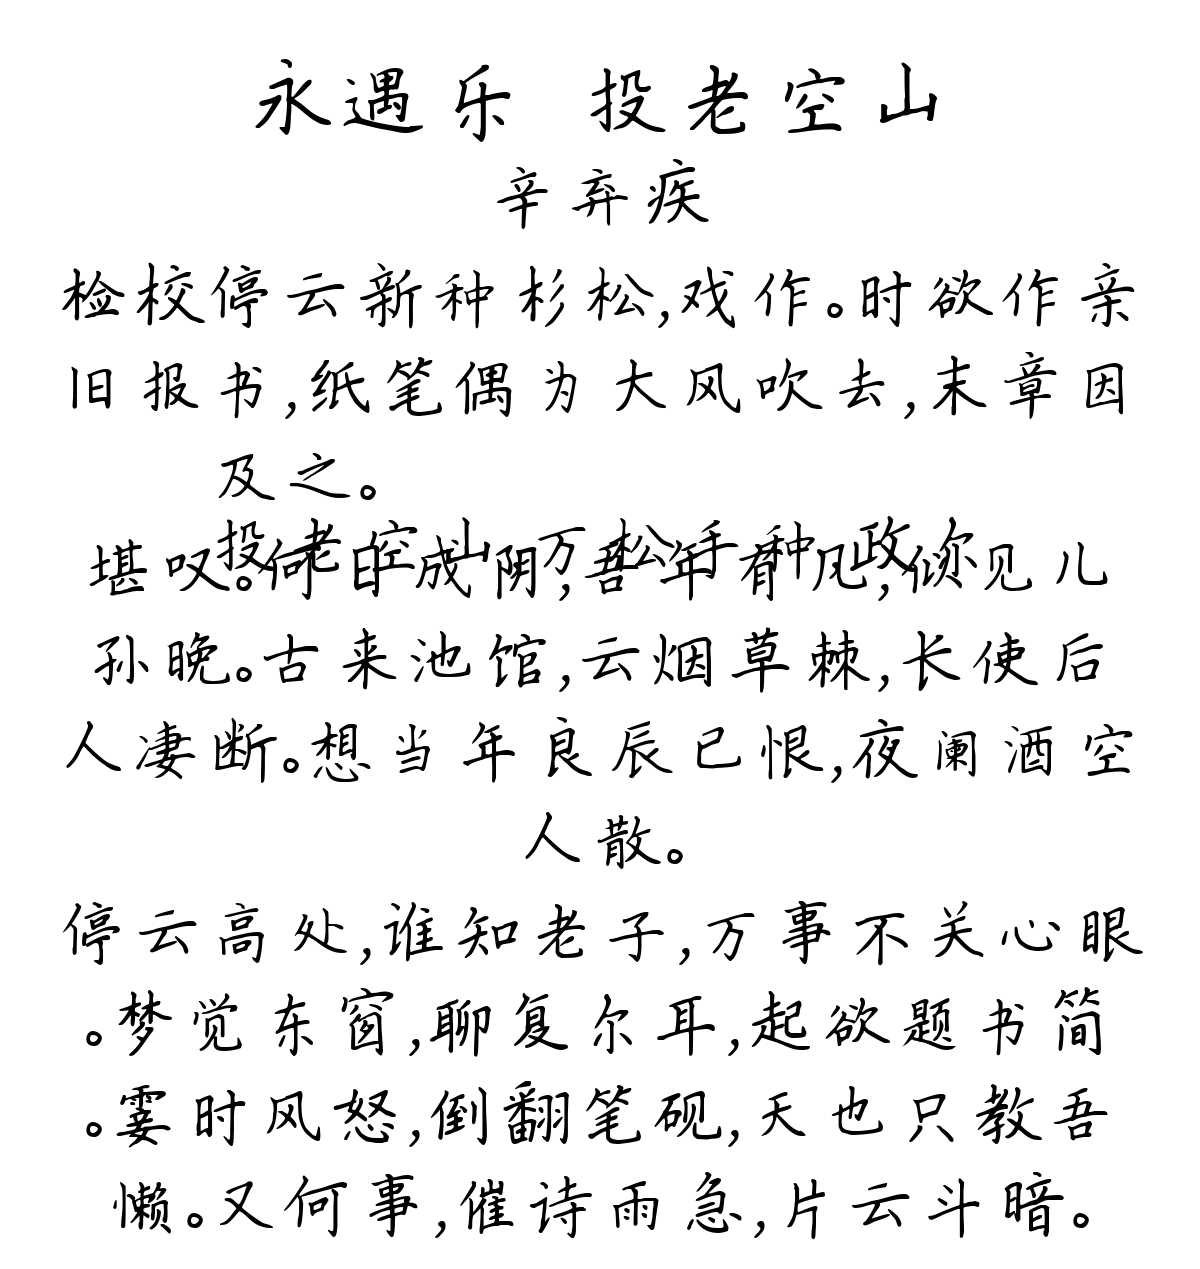 永遇乐 投老空山
辛弃疾
检校停云新种杉松,戏作。时欲作亲
旧报书,纸笔偶为大风吹去,末章因
及之。
投老空山,万松手种,政尔
堪叹。何日成阴,吾年有几,似见儿
孙晚。古来池馆,云烟草棘,长使后
人凄断。想当年良辰已恨,夜阑酒空
人散。
停云高处,谁知老子,万事不关心眼
。梦觉东窗,聊复尔耳,起欲题书简
。霎时风怒,倒翻笔砚,天也只教吾
懒。又何事,催诗雨急,片云斗暗。